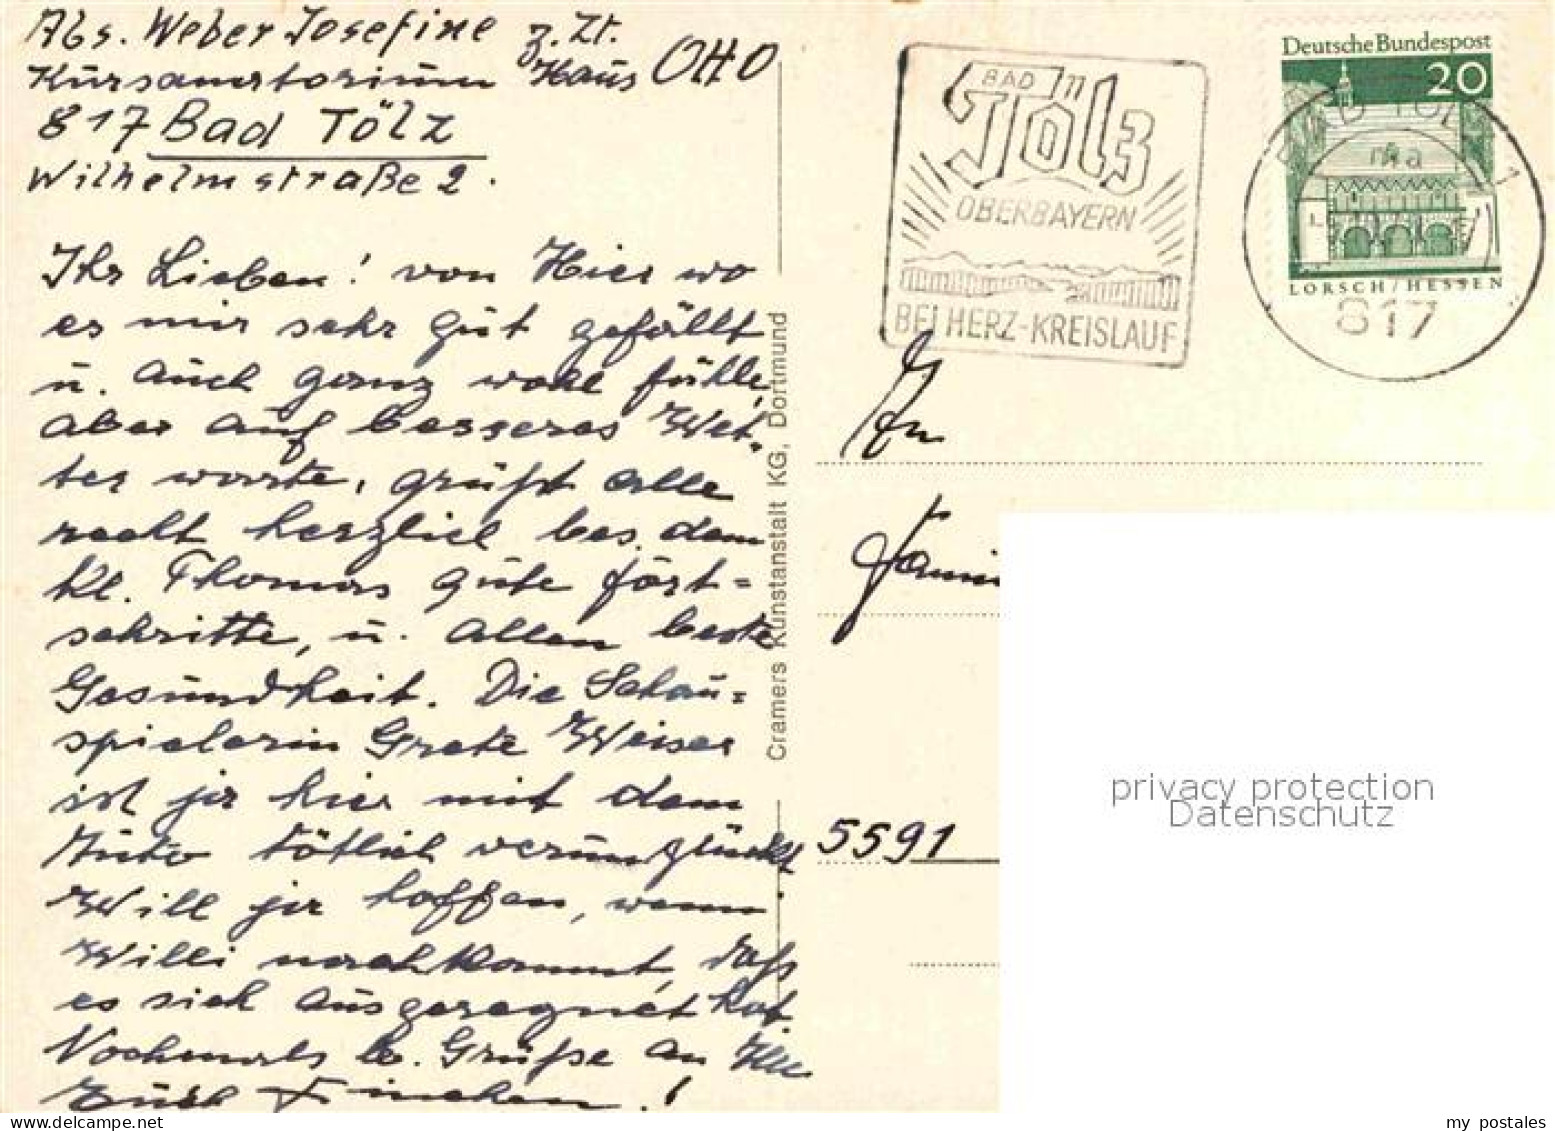 Abs. Weber Josefine z. Zt.
Kursanatorium Haus OHO
817 Bad Tölz
Wilhelmstraße 2.
Ihr Lieben! von Hier wo
es mir sehr gut gefällt
u. auch ganz wohl fühle,
aber auf besseres Wet-
ter warte, grüßt alle
recht herzlich bes. dem
kl. Thomas gute Fort=
schritte, u. allen beste
Gesundheit. Die Schau=
spielerin Grete Weiser
ist ja hier mit dem
Auto tötlich verunglückt.
Will ja hoffen, wenn
Willi nachkommt, daß
es sich ausgeregnet hat
Nochmals lb. Grüße an Alle
Eure Finchen!
Cramers Kunstanstalt KG, Dortmund
BAD
Tölz
OBERBAYERN
BEI HERZ-KREISLAUF
Deutsche Bundespost
20
LORSCH/HESSEN
BAD TÖLZ 1
ma
817
An
5591
privacy protection
Datenschutz
my postales